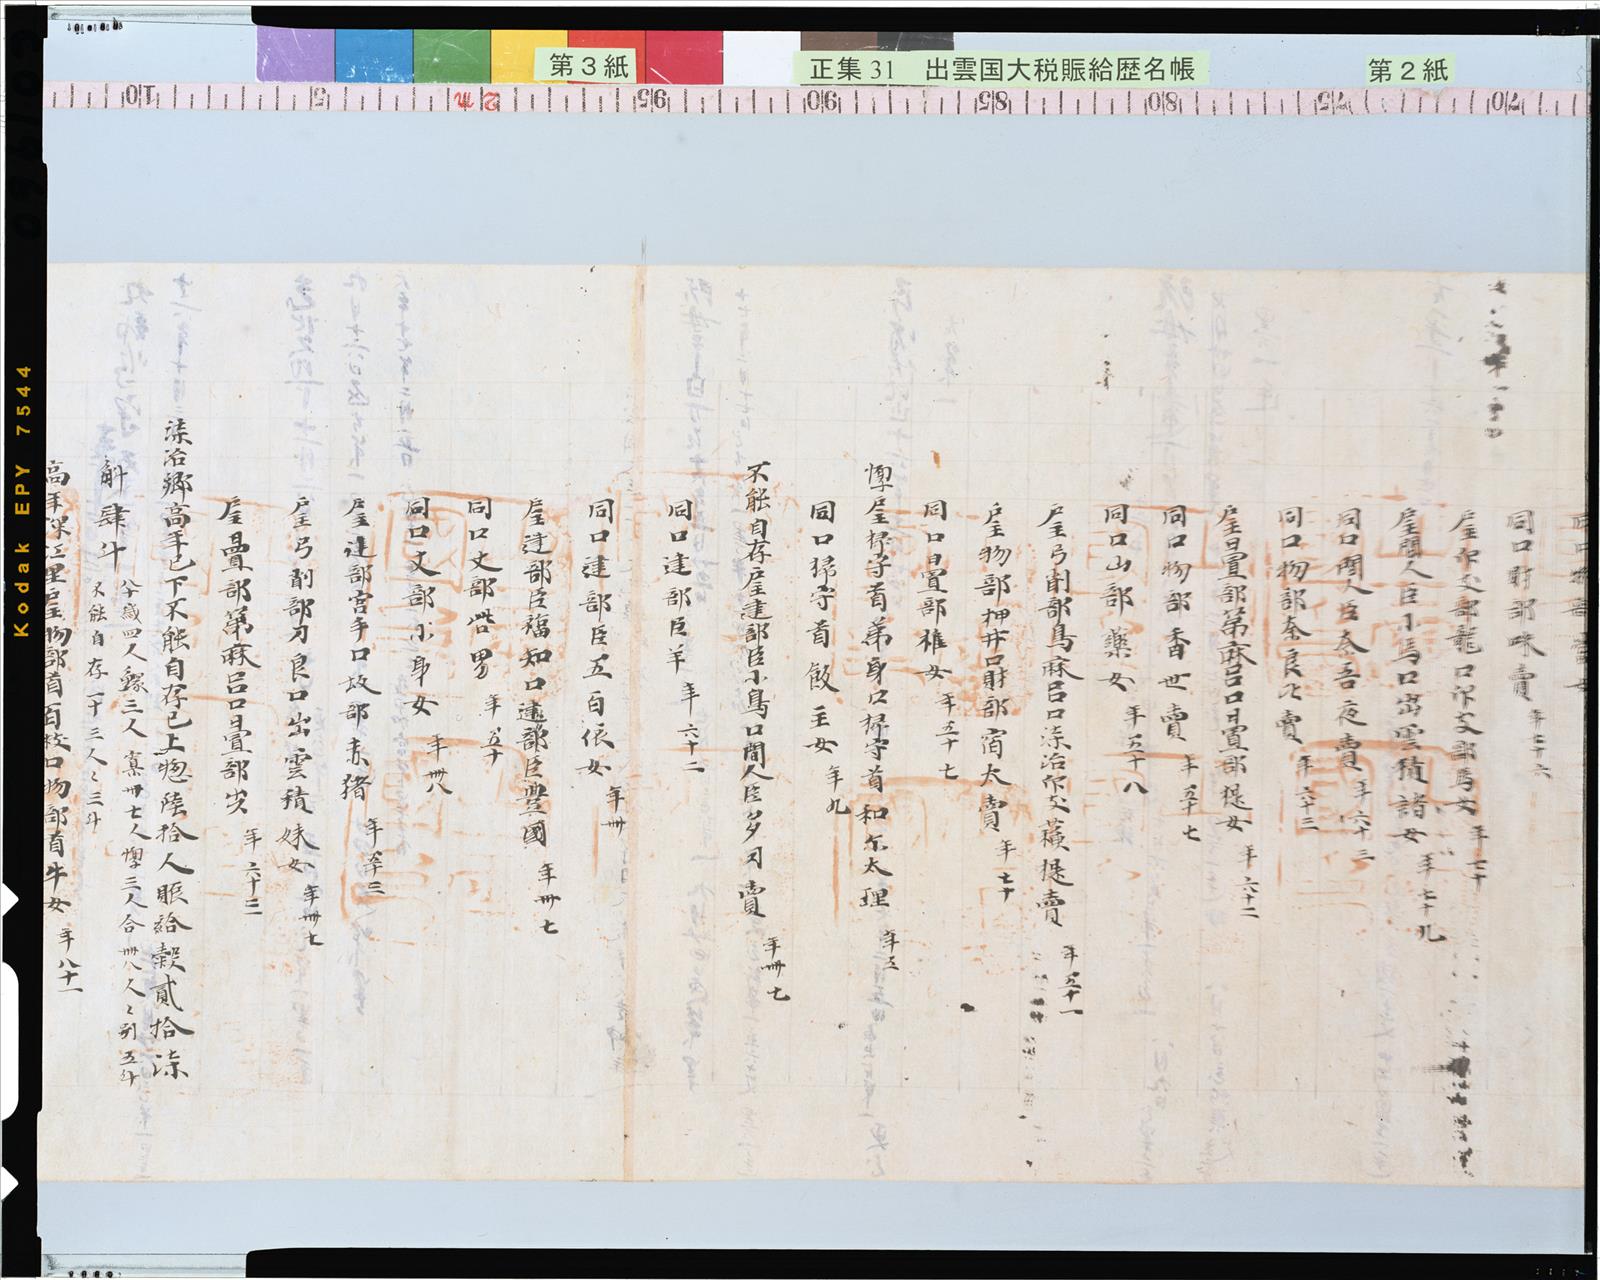 第3紙
正集31 出雲国大税賑給歴名帳
第2紙
Kodak EPY 7544
同口財部咩賣 年七十六
戸主尓支部龍口尓支部馬女 年七十
戸主間人臣小馬口出雲積諸女 年七十九
同口間人臣奈吾夜賣 年六十二
同口物部奈良比賣 年六十三
戸主日置部第麻呂口日置部提女 年六十二
同口物部香世賣 年五十七
同口山部藥女 年五十八
戸主弓削部鳥麻呂口漆治尓支蘰提賣 年五十一
戸主物部押井口財部宿太賣 年七十
同口日置部椎女 年五十七
同口掃守首飯主女 年九
惸戸主掃守首弟身口掃守首和尓太理 年五
不能自存戸主建部臣小鳥口間人臣多刀賣 年卌七
同口建部臣羊 年六十二
同口建部臣五百依女 年卌
戸主建部臣福知口建部臣豊國 年卌七
同口丈部嶋男 年五十
同口丈部小身女 年卌八
戸主建部宮手口坂部赤猪 年六十三
戸主弓削部刀良口出雲積妹女 年卌七
戸主日置部第麻呂口日置部劣 年六十三
漆治郷高年已下不能自存已上惣陸拾人賑給穀貳拾漆
斛肆斗 八十歳四人鰥三人寡卌七人惸三人合卌八人々別五斗
不能自存一十三人々三斗
高年深江里戸主物部首百枝口物部首牛女 年八十一